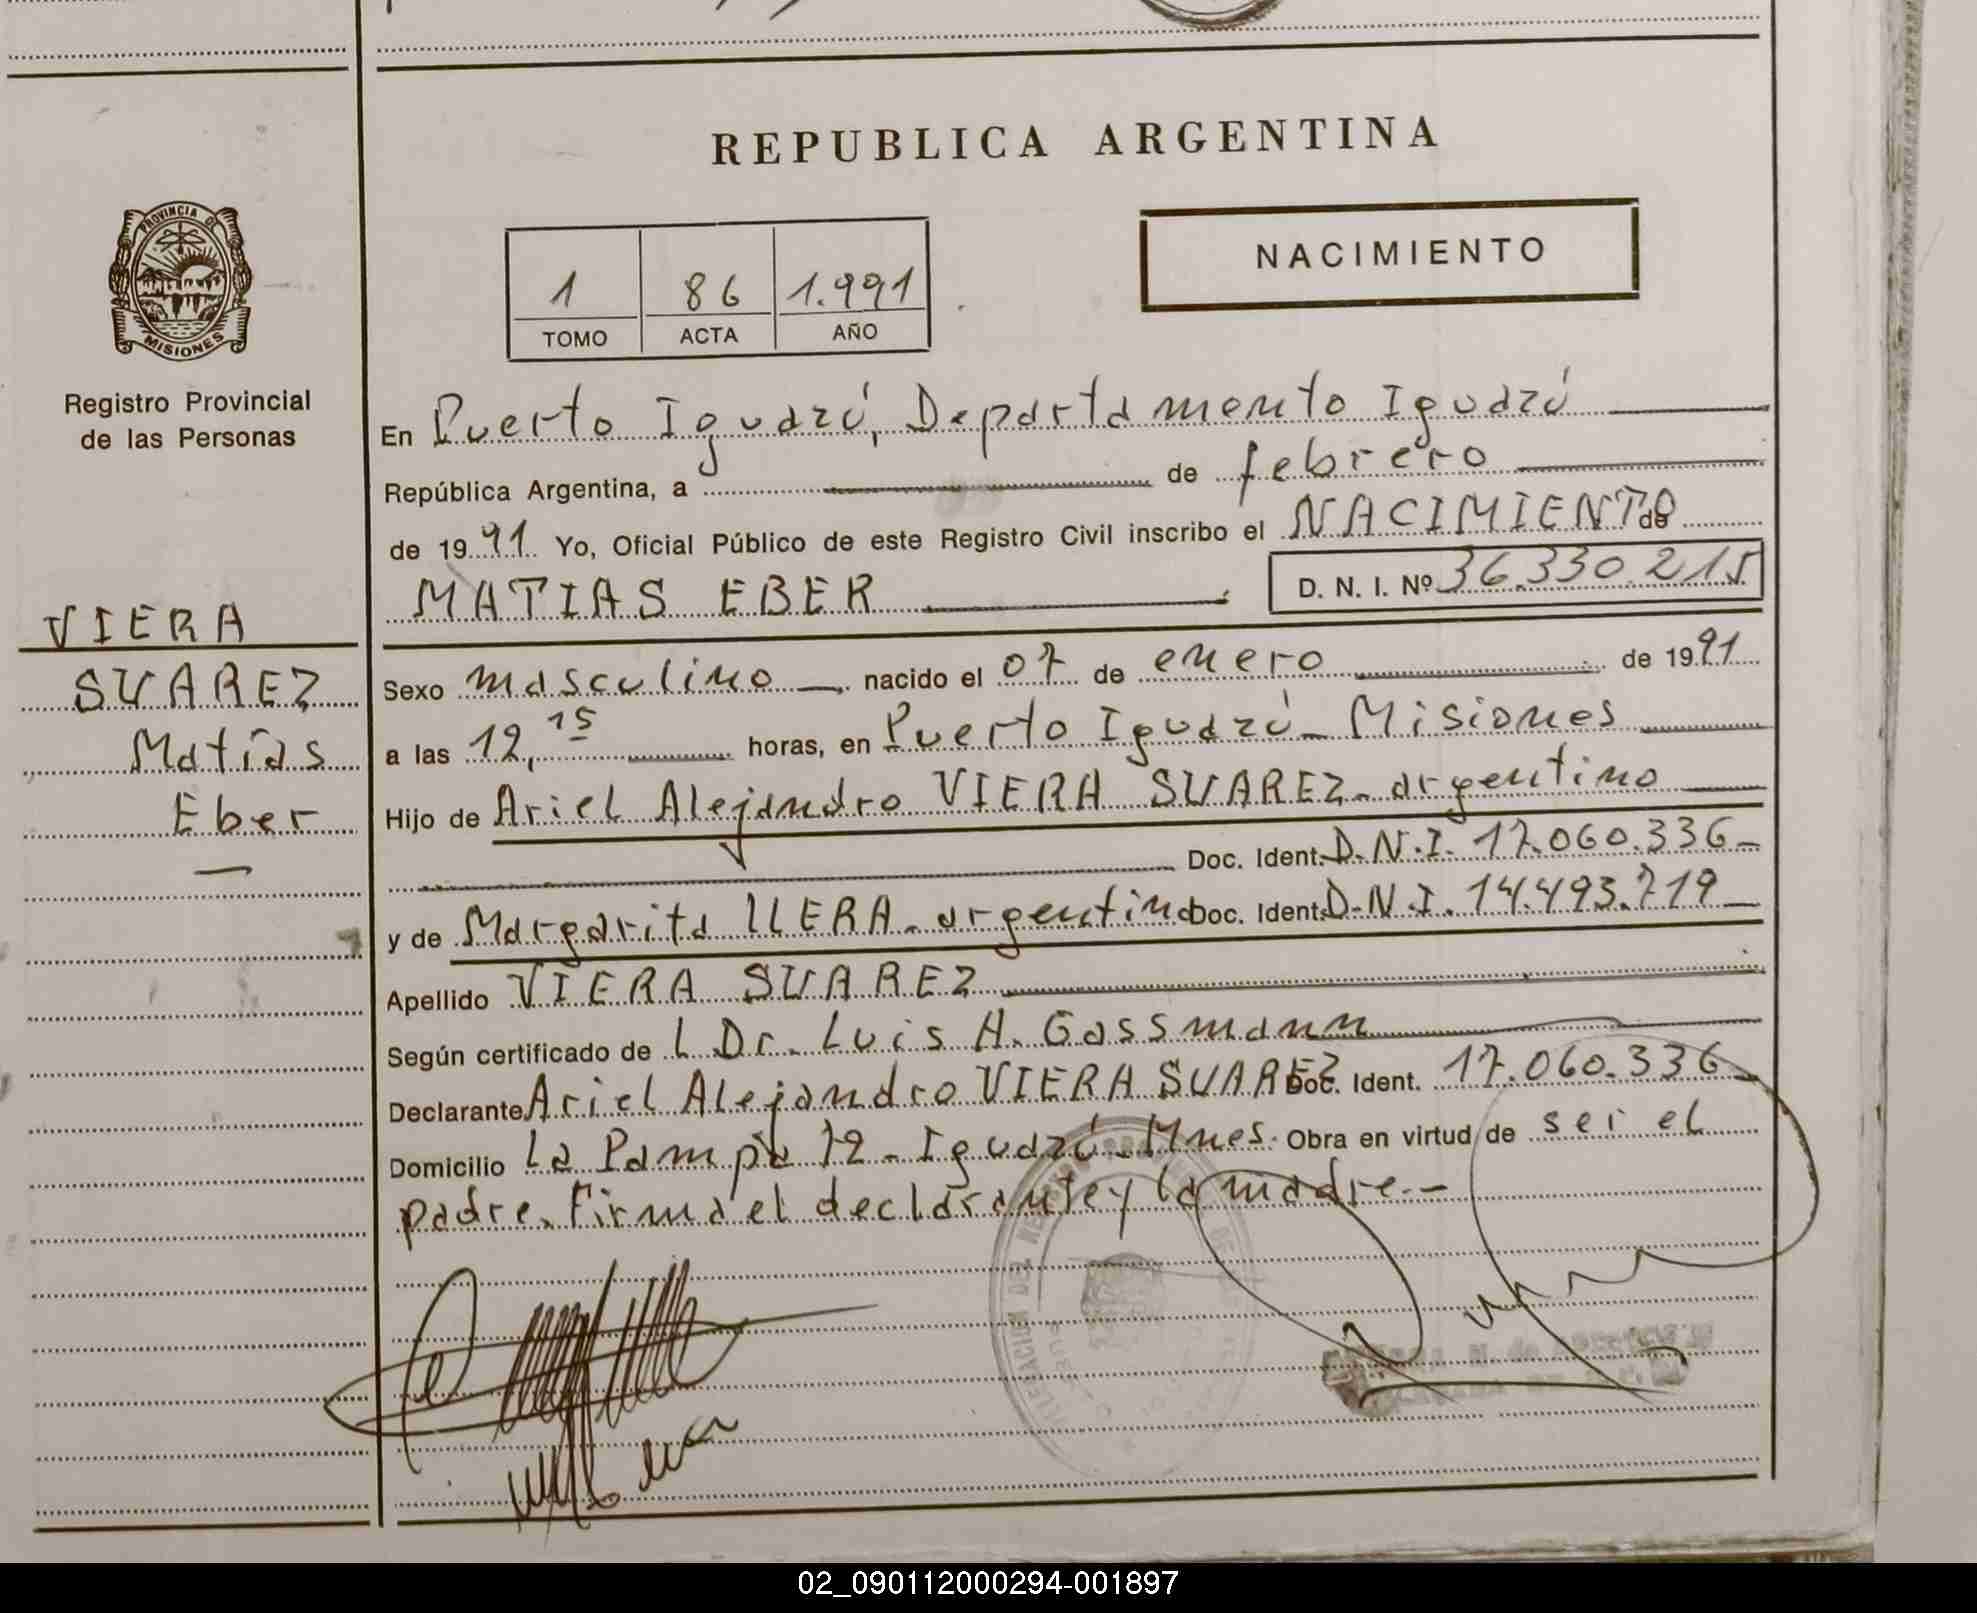 REPUBLICA ARGENTINA
PROVINCIA DE
MISIONES
Registro Provincial
de las Personas
1 86 1.991
TOMO ACTA AÑO
NACIMIENTO
VIERA
SUAREZ
Matías
Eber
En Puerto Iguazú, Departamento Iguazú
República Argentina, a de febrero
de 1991 Yo, Oficial Público de este Registro Civil inscribo el NACIMIENTO de
MATIAS EBER D. N. I. Nº 36.330.215
Sexo masculino nacido el 07 de enero de 1991
a las 12,15 horas, en Puerto Iguazú - Misiones
Hijo de Ariel Alejandro VIERA SUAREZ - argentino
Doc. Ident. D.N.I. 17.060.336-
y de Margarita LLERA - argentina Doc. Ident. D.N.I. 14.493.719-
Apellido VIERA SUAREZ
Según certificado de L Dr. Luis A. Gassmann
Declarante Ariel Alejandro VIERA SUAREZ Doc. Ident. 17.060.336-
Domicilio La Pampa 72 - Iguazú - Mnes. Obra en virtud de ser el
padre. Firma el declarante y la madre.-
02_090112000294-001897